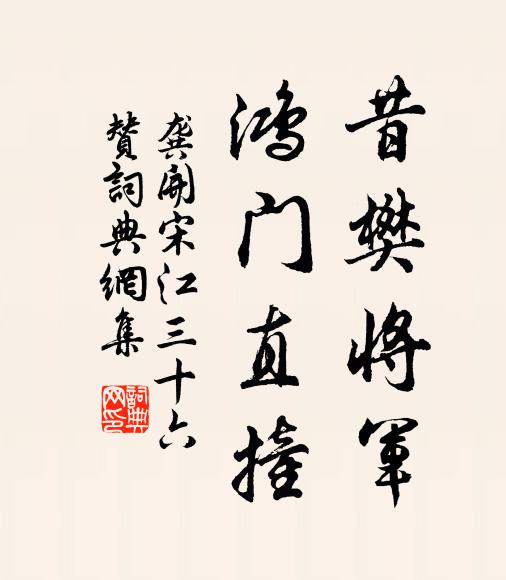 昔樊将軍
鴻门直撞
龔開宋江三十六
贊詞典網集
詞典网印